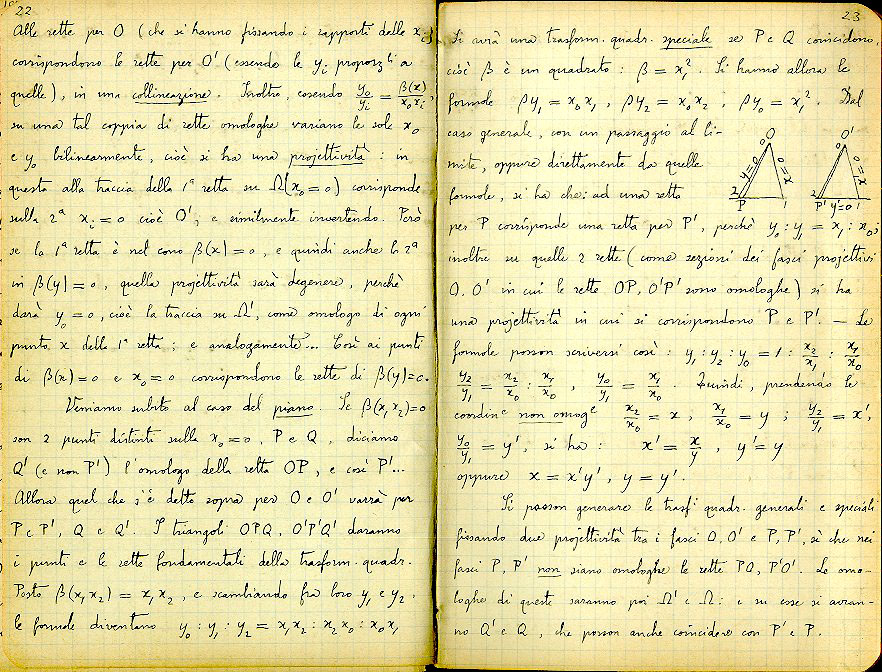 22
Alle rette per O (che si hanno fissando i rapporti delle xᵢ)
corrispondono le rette per O' (essendo le yᵢ proporz^li a
quelle), in una collineazione. Inoltre, essendo y₀/yᵢ = β(x)/x₀xᵢ,
su una tal coppia di rette omologhe variano le sole x₀
e y₀ bilinearmente, cioè si ha una projettività: in
questa alla traccia della 1ª retta su Ω(x₀=0) corrisponde
sulla 2ª xᵢ=0 cioè O', e similmente invertendo. Però
se la 1ª retta è nel cono β(x)=0, e quindi anche la 2ª
in β(y)=0, quella projettività sarà degenere, perchè
darà y₀=0, cioè la traccia su Ω', come omologo di ogni
punto x della 1ª retta; e analogamente... Così ai punti
di β(x)=0 e x₀=0 corrispondono le rette di β(y)=0.
Veniamo subito al caso del piano. Se β(x₁x₂)=0
son 2 punti distinti sulla x₀=0, P e Q, diciamo
Q' (e non P') l'omologo della retta OP, e così P'...
Allora quel che s'è detto sopra per O e O' varrà per
P e P', Q e Q'. I triangoli OPQ, O'P'Q' daranno
i punti e le rette fondamentali della trasform. quadr.
Posto β(x₁x₂) = x₁x₂, e scambiando fra loro y₁ e y₂,
le formule diventano y₀ : y₁ : y₂ = x₁x₂ : x₂x₀ : x₀x₁
23
Si avrà una trasform. quadr. speciale se P e Q coincidono,
cioè β è un quadrato: β = x₁². Si hanno allora le
formole ρy₁ = x₀x₁, ρy₂ = x₀x₂, ρy₀ = x₁². Dal
caso generale, con un passaggio al li-
mite, oppure direttamente da quelle
formole, si ha che: ad una retta
O
0
y=0
0=x
2
P
1
O'
0
0=x
2
P'
y'=0
1
per P corrisponde una retta per P', perchè y₀ : y₁ = x₁ : x₀;
inoltre su quelle 2 rette (come sezioni dei fasci projettivi
O, O' in cui le rette OP, O'P' sono omologhe) si ha
una projettività in cui si corrispondono P e P'. — Le
formole posson scriversi così: y₁ : y₂ : y₀ = 1 : x₂/x₁ : x₁/x₀
y₂/y₁ = x₂/x₀ : x₁/x₀, y₀/y₁ = x₁/x₀. Quindi, prendendo le
coordin^e non omog^e x₂/x₀ = x, x₁/x₀ = y; y₂/y₁ = x',
y₀/y₁ = y', si ha: x' = x/y, y' = y
oppure x = x'y', y = y'.
Si posson generare le trasf^i quadr. generali e speciali
fissando due projettività tra i fasci O, O' e P, P', sì che nei
fasci P, P' non siano omologhe le rette PO, P'O'. Le omo-
loghe di queste saranno poi Ω' e Ω: e su esse si avran-
no Q' e Q, che posson anche coincidere con P' e P.